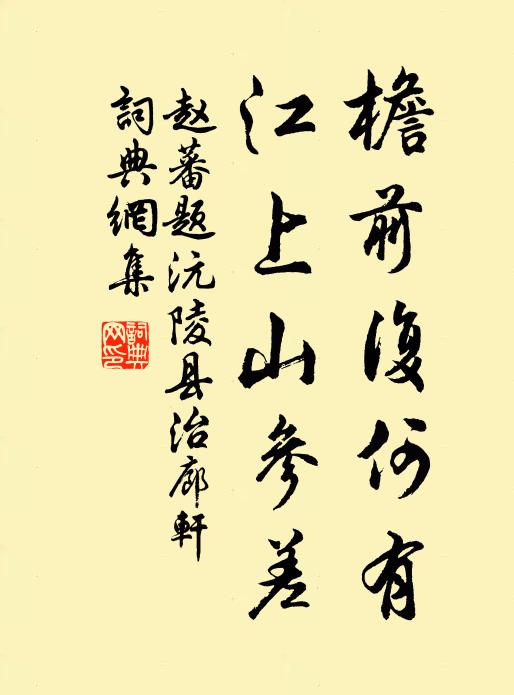 檐前復何有
江上山参差
赵蕃题沅陵县治廊軒
詞典網集
詞典
网印